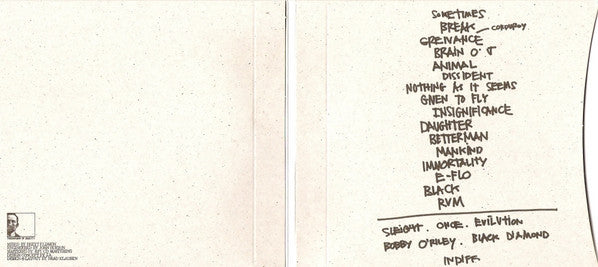 SOMETIMES
BREAK — CORDUROY
GREIVANCE
BRAIN O' J
ANIMAL
DISSIDENT
NOTHING AS IT SEEMS
GIVEN TO FLY
INSIGNIFICANCE
DAUGHTER
BETTERMAN
MANKIND
IMMORTALITY
E-FLO
BLACK
RVM
SLEIGHT. ONCE. EVILUTION
BOBBY O'RILEY. BLACK DIAMOND
INDIFF
MIXED BY BRETT ELIASON
ENGINEERED BY JOHN BURTON